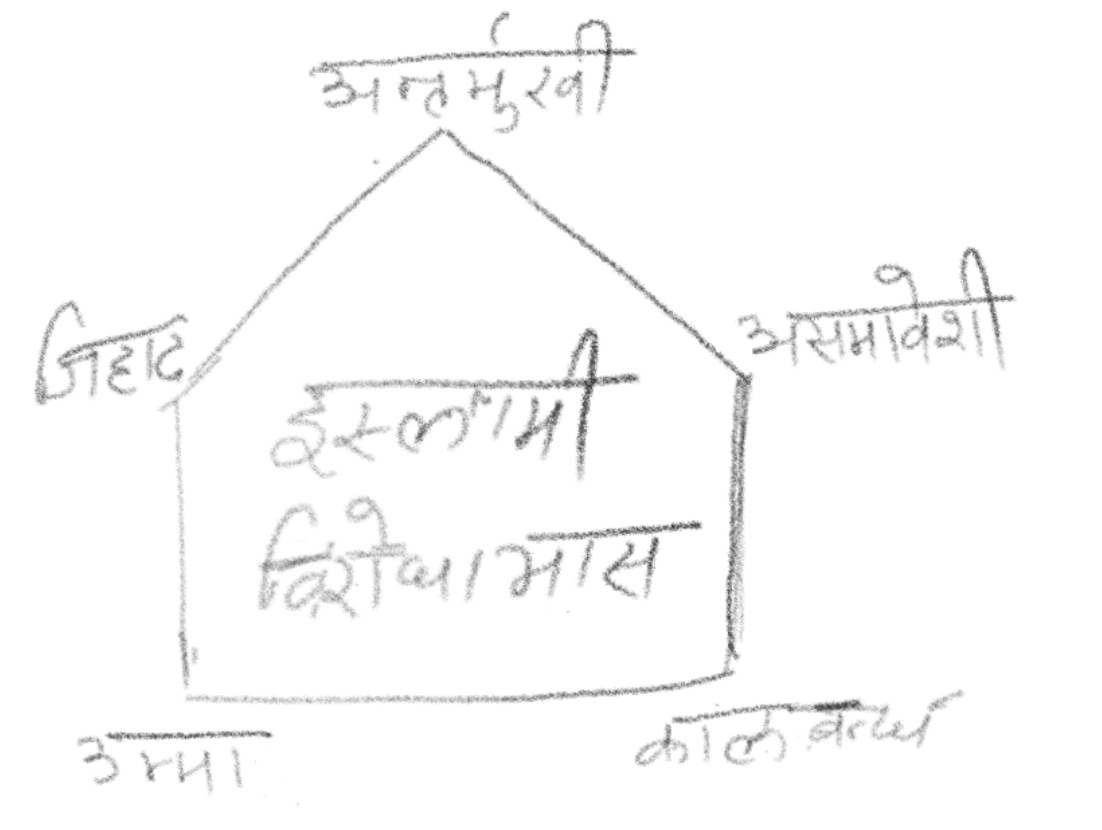 अन्तर्मुखी
जिहाद
असमावेशी
इस्लामी
विरोधाभास
उम्मा
काल बन्ध